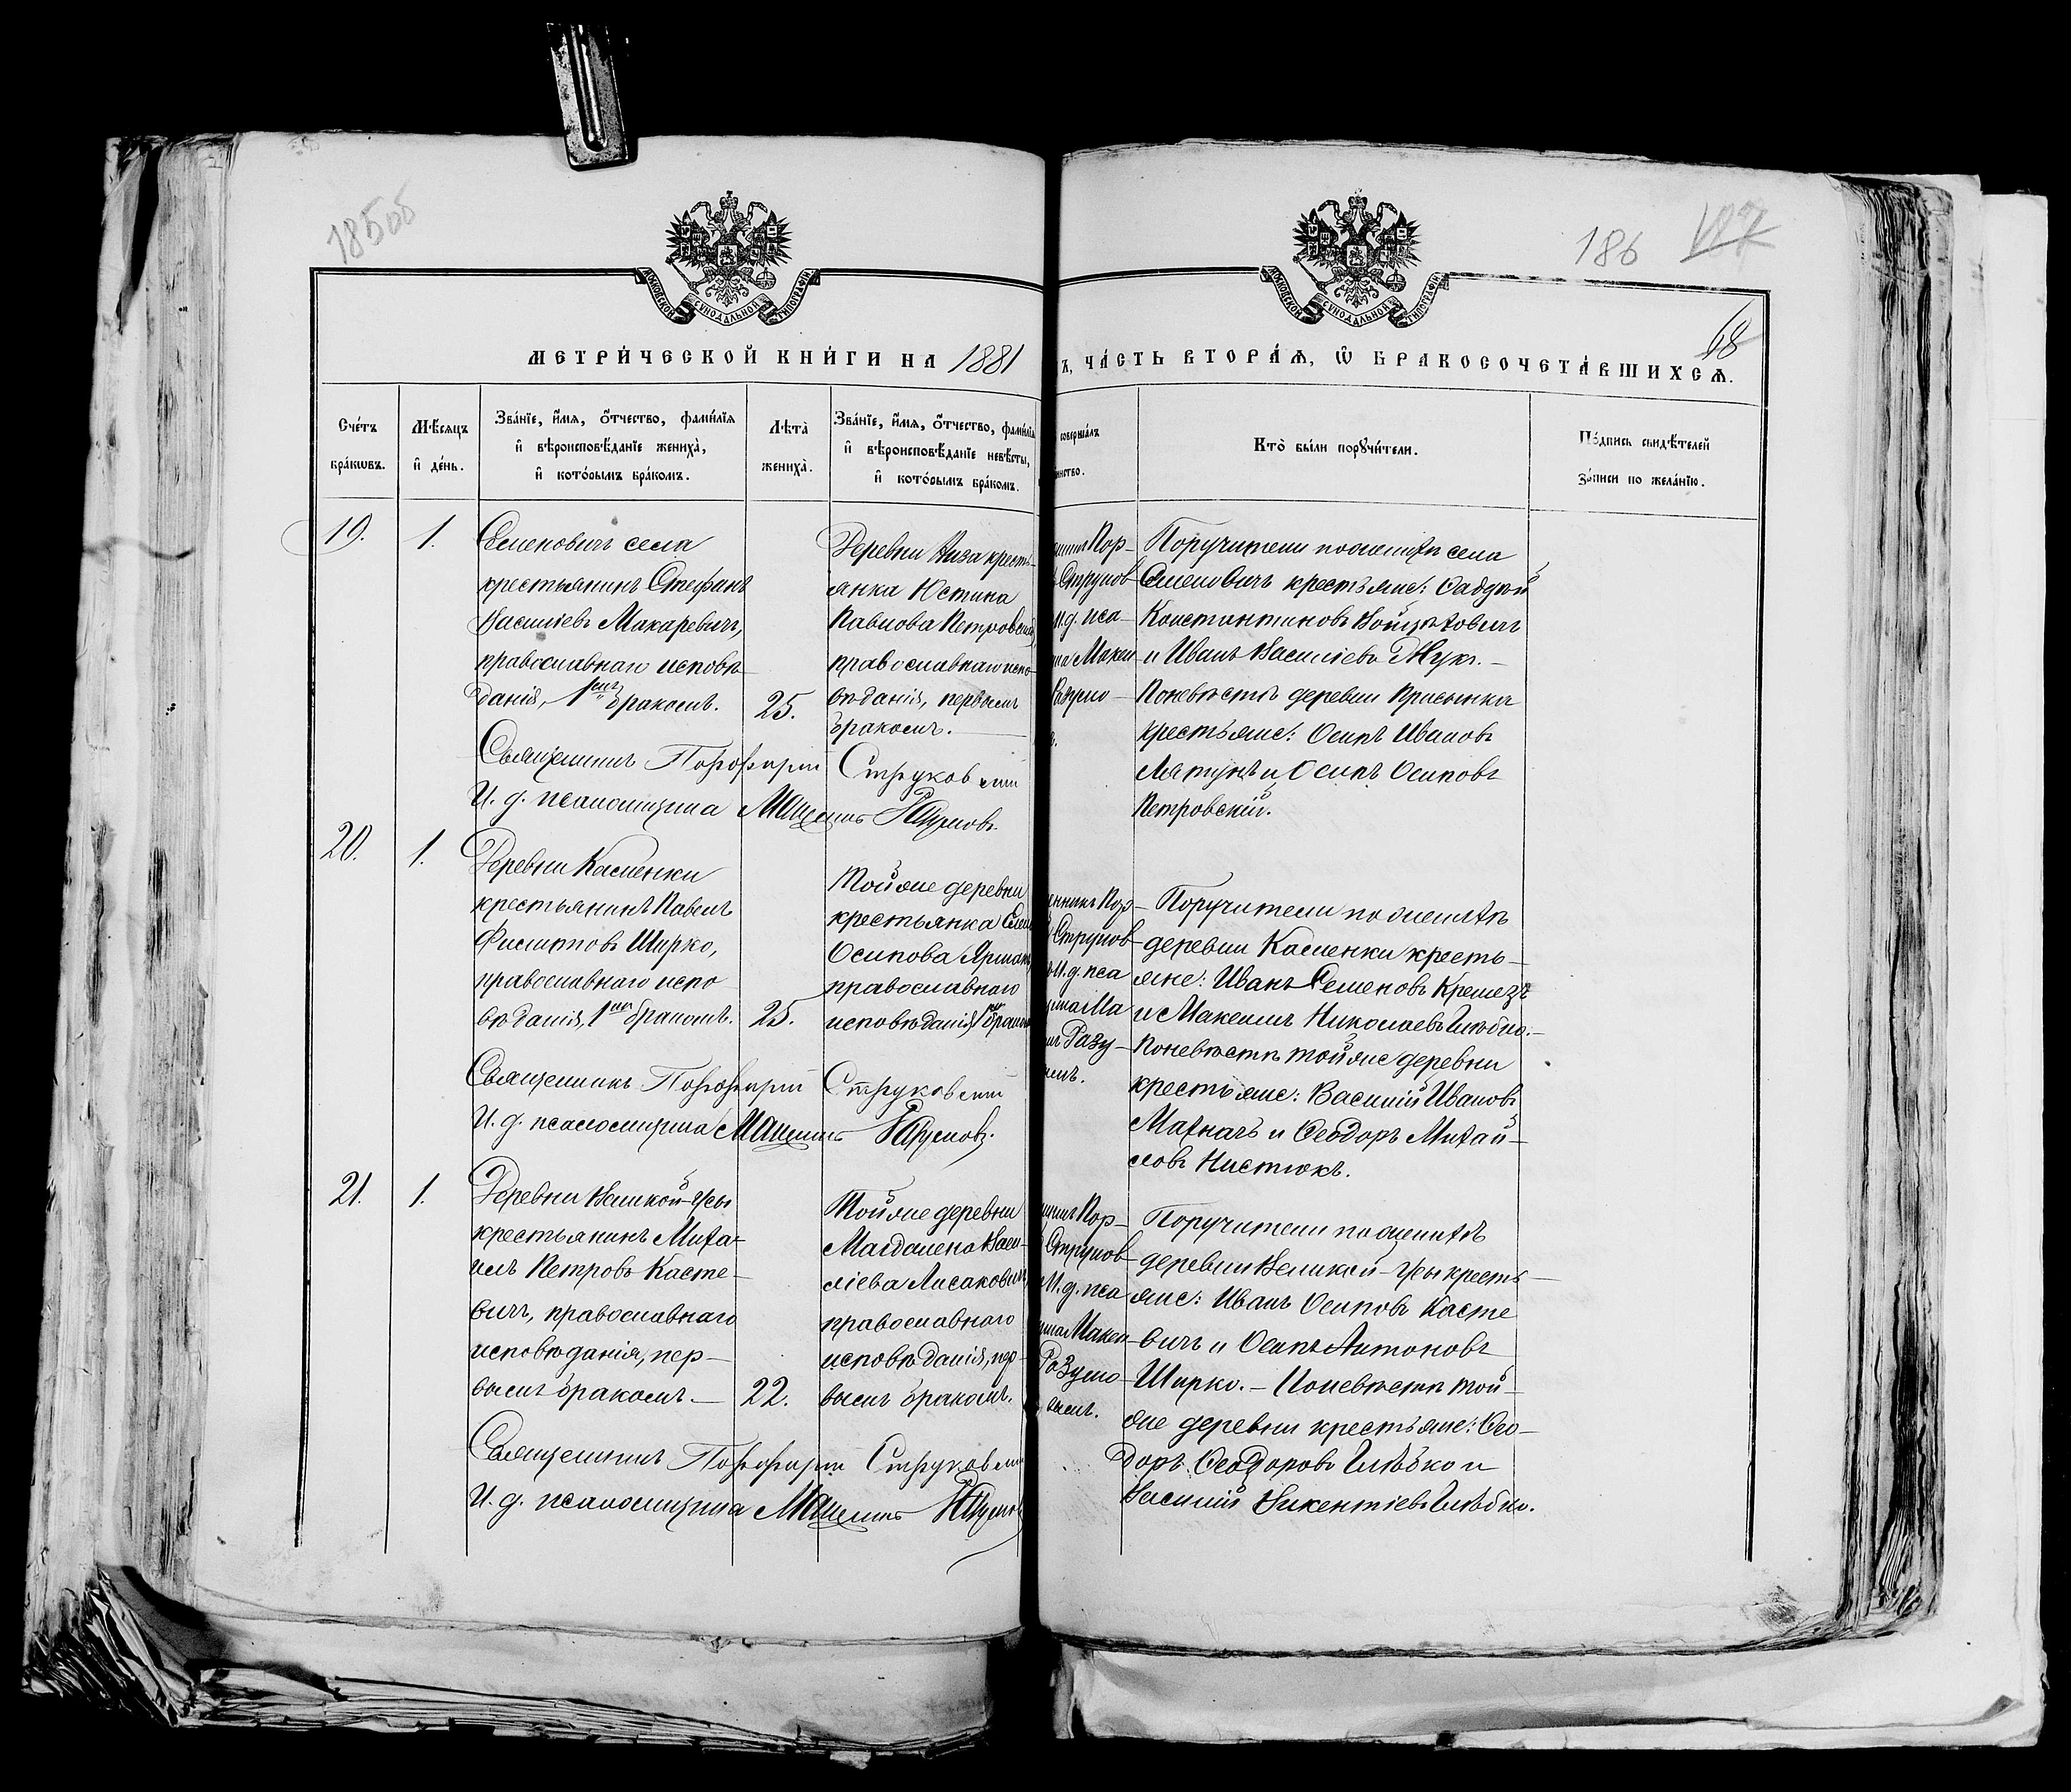 185об
186
68
МОСКОВСКОЙ СѴНОДАЛЬНОЙ ТИПОГРАФІИ
МОСКОВСКОЙ СѴНОДАЛЬНОЙ ТИПОГРАФІИ
МЕТРИ́ЧЕСКОЙ КНИ́ГИ НА 1881
Ъ, ЧА́СТЬ ВТОРА́Ѧ, Ѿ БРАКОСОЧЕТА́ВШИХСѦ.
Сче́тъ
бра́кѡвъ.
Мѣ́сѧцъ
и҆ де́нь.
Зва́нїе, и҆́мѧ, ѻ҆́тчество, фами́лїѧ
и҆ вѣроисповѣ́данїе жениха̀,
и҆ кото́рымъ бра́комъ.
Лѣ́та̀
жениха̀.
Зва́нїе, и҆́мѧ, ѻ҆́тчество, фами́лїѧ
и҆ вѣроисповѣ́данїе невѣ́сты,
и҆ кото́рымъ бра́комъ.
соверша́лъ
инство.
Кто̀ бы́ли порꙋчи́тели.
По́дпись свидѣ́телей
за́писи по жела́нїю.
19.
1.
Семеновичъ села
крестьянинъ Стефанъ
Василіевъ Макаревичъ,
православнаго исповѣ
данія, 1мъ бракомъ.
25.
Деревни Низа кресть-
янка Юстина
Павлова Петровская,
православнаго испо
вѣданія, первымъ
бракомъ.
Пор-
Струков
И. д. пса-
Макси
Разумо-
Поручители по женихѣ села
Семеновичъ крестьяне: Фаддей
Константиновъ Войтеховичъ
и Иванъ Василіевъ Жукъ.-
По невѣстѣ деревни Присынка
крестьяне: Осипъ Ивановъ
Осипъ Осиповъ
Петровскій.
Священникъ Порфирій Струковскій
И. д. псаломщика Максимъ Разумовъ.
20.
1.
Деревни Каменки
крестьянинъ Павелъ
Филиповъ Ширко,
православнаго испо
вѣданія, 1мъ бракомъ.
25.
Той же деревни
крестьянка
Осипова
православнаго
исповѣданія, 1мъ бракомъ
енникъ Пор-
Струков
И. д. пса
щика Ма
Разу-
Поручители по женихѣ
деревни Каменки кресть-
яне: Иванъ Семеновъ
и Максимъ Николаевъ Глѣбко.-
По невѣстѣ той же деревни
крестьяне: Василій Ивановъ
Махначъ и Ѳеодоръ Михай-
ловъ Нистюкъ.
Священникъ Порфирій Струковскій
И. д. псаломщика Максимъ Разумовъ.
21.
1.
Деревни Великой-Усы
крестьянинъ Миха-
илъ Петровъ Касте-
вичъ, православнаго
исповѣданія, пер-
вымъ бракомъ.-
22.
Той же деревни
Магдалена Васи-
ліева Лисаковичъ
православнаго
исповѣданія, пер-
вымъ бракомъ.
Пор-
Струков
И. д. пса
Макси-
Разумо-
вымъ.
Поручители по женихѣ
деревни Великой-Усы кресть-
яне: Иванъ Осиповъ Касте
вичъ и Осипъ Антоновъ
Ширко.- По невѣстѣ той-
же деревни крестьяне: Ѳео-
доръ Ѳеодоровъ Глѣбко и
Василій Викентіевъ Глѣбко.
Священникъ Порфирій Струковскій
И. д. псаломщика Максимъ Разумовъ